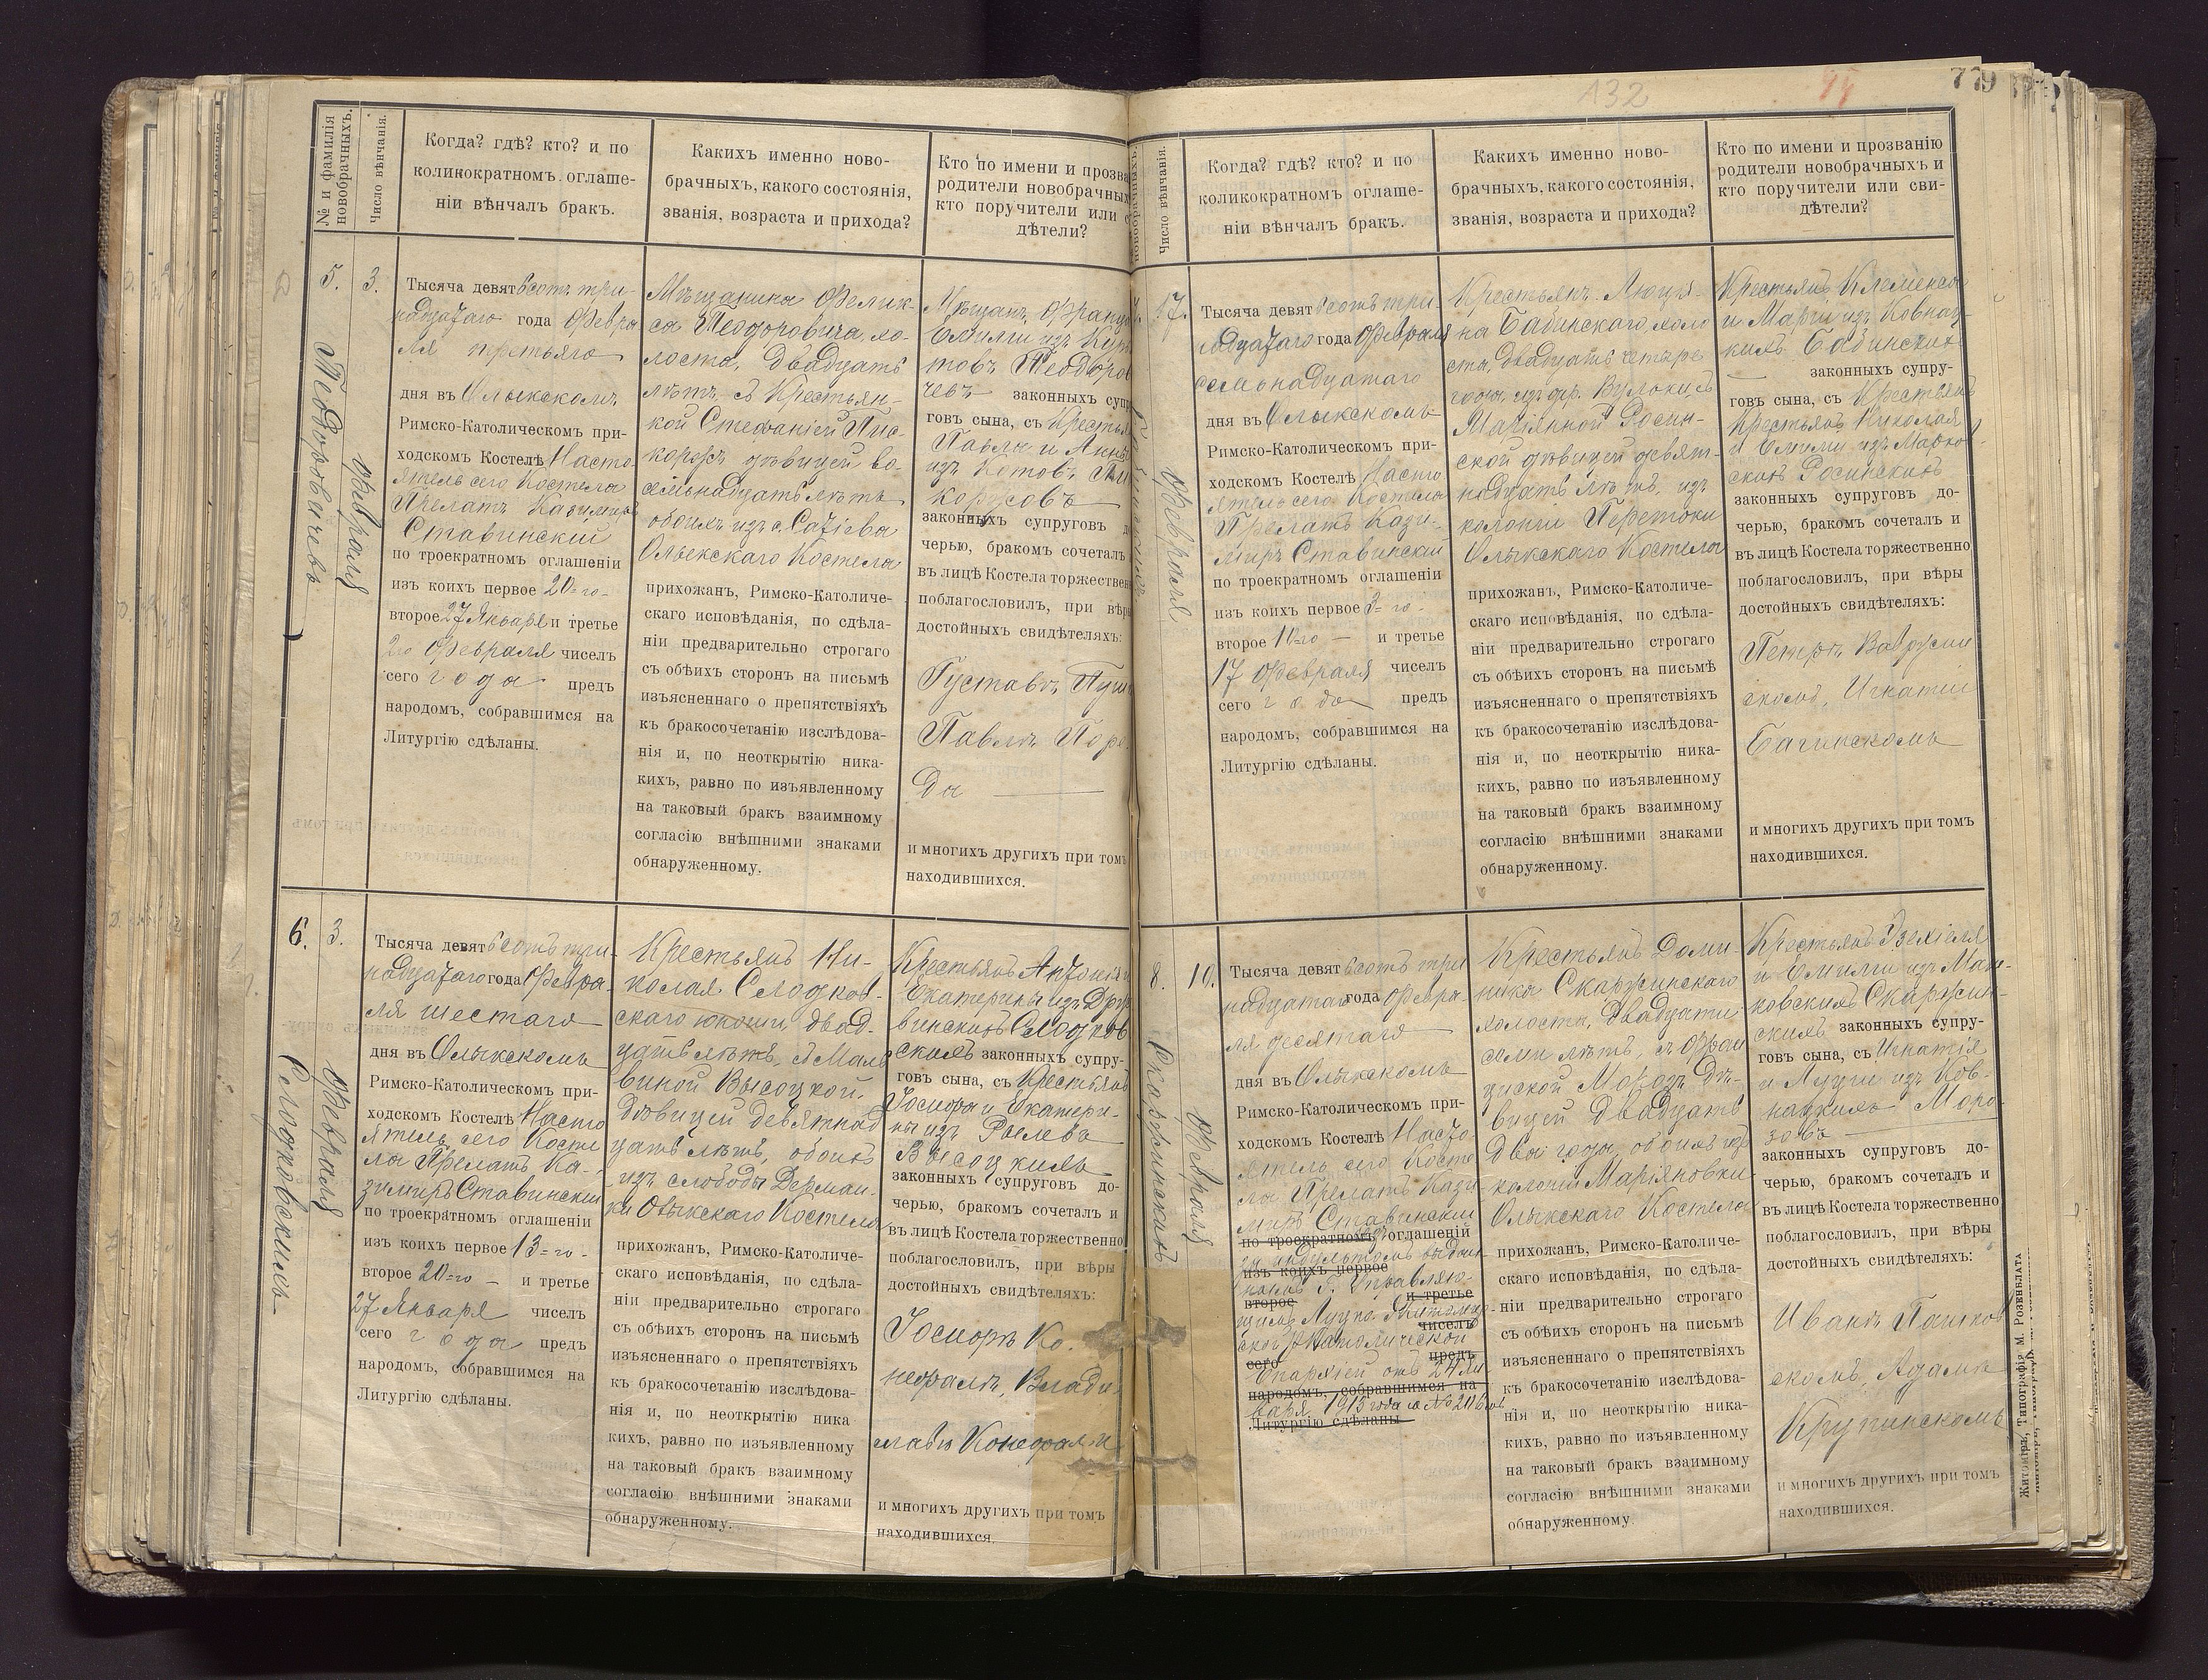 132
779
№ и фамилія
новобрачныхъ.
Число вѣнчанія.
Когда? гдѣ? кто? и по
коликократномъ оглаше-
ніи вѣнчалъ бракъ.
Какихъ именно ново-
брачныхъ, какого состоянія,
званія, возраста и прихода?
Кто по имени и прозва
родители новобрачных
кто поручители или с
дѣтели?
5.
3.
Теодоровичевъ
Февраля
Тысяча девятьсотъ три-
надцатаго года Февра
ля третьяго
дня въ Олыкскомъ
Римско-Католическомъ при-
ходскомъ Костелѣ Насто-
ятель сего Костела
Прелатъ Казимиръ
Ставинскій
по троекратномъ оглашеніи
изъ коихъ первое 20=го-
второе 27 Января и третье
2го Февраля чиселъ
сего года предъ
народомъ, собравшимся на
Литургію сдѣланы.
Мѣщанина Фелик-
са Теодоровича, хо-
лоста, двадцать
лѣтъ, съ Крестьян-
кой Стефаніей Пис-
корожъ дѣвицей во-
семьнадцать лѣтъ
обоихъ изъ с. Сатіева
Олыкскаго Костела
прихожанъ, Римско-Католиче-
скаго исповѣданія, по сдѣла-
ніи предварительно строгаго
съ обѣихъ сторонъ на письмѣ
изъясненнаго о препятствіяхъ
къ бракосочетанію изслѣдова-
нія и, по неоткрытію ника-
кихъ, равно по изъявленному
на таковый бракъ взаимному
согласію внѣшними знаками
обнаруженному.
Мѣщанъ Франц
Емиліи изъ
товъ Теодоро
чевъ законныхъ супр
говъ сына, съ Крестья
Павла и Анны
изъ Котовъ
законныхъ супруговъ д
черью, бракомъ сочеталъ
въ лицѣ Костела торжествен
поблагословилъ, при вѣр
достойныхъ свидѣтеляхъ:
Густавъ
Павлъ Поре
да
и многихъ другихъ при томъ
находившихся.
6.
3.
Селодковскихъ
Февраля
Тысяча девятьсотъ три-
надцатаго года Февра-
ля шестаго
дня въ Олыкскомъ
Римско-Католическомъ при-
ходскомъ Костелѣ Насто
ятель сего Косте
ла Прелатъ Ка-
зимиръ Ставинскій
по троекратномъ оглашеніи
изъ коихъ первое 13=го-
второе 20=го и третье
27 Января чиселъ
сего года предъ
народомъ, собравшимся на
Литургію сдѣланы.
Крестьянъ Ни-
колая Селодков-
скаго юноши, двад-
цать лѣтъ, съ Маль
виной Высоцкой,
дѣвицей девятнад
цать лѣтъ, обоихъ
изъ слободы Дерман-
ки Олыкскаго Костела
прихожанъ, Римско-Католиче-
скаго исповѣданія, по сдѣла-
ніи предварительно строгаго
съ обѣихъ сторонъ на письмѣ
изъясненнаго о препятствіяхъ
къ бракосочетанію изслѣдова-
нія и, по неоткрытію ника
кихъ, равно по изъявленному
на таковый бракъ взаимному
согласію внѣшними знаками
обнаруженному.
Крестьянъ Антонія и
Екатерины изъ
винскихъ Селодков
скихъ законныхъ супру-
говъ сына, съ Крестьянъ
и Екатери-
ны изъ
Высоцкихъ
законныхъ супруговъ до-
черью, бракомъ сочеталъ и
въ лицѣ Костела торжественно
поблагословилъ, при вѣры
достойныхъ свидѣтеляхъ:
Ко-
нефалъ, Влади-
славъ Конефалъ
и многихъ другихъ при томъ
находившихся.
Число вѣнчанія.
Когда? гдѣ? кто? и по
коликократномъ оглаше-
ніи вѣнчалъ бракъ.
Какихъ именно ново-
брачныхъ, какого состоянія,
званія, возраста и прихода?
Кто по имени и прозванію
родители новобрачныхъ и
кто поручители или сви-
дѣтели?
17.
Февраля
Тысяча девятьсотъ три
надцатаго года Февраля
семьнадцатаго
дня въ Олыкскомъ
Римско-Католическомъ при-
ходскомъ Костелѣ Насто
ятель сего Костела
Прелатъ Кази-
миръ Ставинскій
по троекратномъ оглашеніи
изъ коихъ первое 3=го-
второе 10=го и третье
17 Февраля чиселъ
сего года предъ
народомъ, собравшимся на
Литургію сдѣланы.
Крестьянъ Люція-
на Бабинскаго, холо
ста, двадцать четыре
года, изъ дер. Вулоки, съ
Маріянной Росин-
ской дѣвицей девят-
надцать лѣтъ, изъ
колоніи Перетоки
Олыкскаго Костела
прихожанъ, Римско-Католиче-
скаго исповѣданія, по сдѣла-
ніи предварительно строгаго
съ обѣихъ сторонъ на письмѣ
изъясненнаго о препятствіяхъ
къ бракосочетанію изслѣдова-
нія и, по неоткрытію ника-
кихъ, равно по изъявленному
на таковый бракъ взаимному
согласію внѣшними знаками
обнаруженному.
Крестьянъ Клеменса
и Маріи изъ Ковнац-
кихъ Бабинскихъ
законныхъ супру-
говъ сына, съ Крестьянъ
Крестьянъ Николая
и Емиліи изъ Марков-
скихъ Росинскихъ
законныхъ супруговъ до-
черью, бракомъ сочеталъ и
въ лицѣ Костела торжественно
поблагословилъ, при вѣры
достойныхъ свидѣтеляхъ:
Петръ
Игнатій
Багинскомъ
и многихъ другихъ при томъ
находившихся.
8.
10.
Скаржинскихъ
Февраля
Тысяча девятьсотъ три
надцатаго года Февра-
ля десятаго
дня въ Олыкскомъ
Римско-Католическомъ при-
ходскомъ Костелѣ Насто-
ятель сего Косте
ла Прелатъ Кази
миръ Ставинскій
по троекратномъ оглашеній
за индультомъ выдан-
изъ коихъ первое
нымъ Управляю-
второе и третье
щимъ Луцко-Житомир-
чиселъ
ской Р Католической
сего предъ
Епархіей отъ 24 Ян
народомъ, собравшимся на
варя 1913 года за №
Литургію сдѣланы
Крестьянъ Доми-
ника Скаржинскаго
холоста, двадцати
семи лѣтъ, съ Фран
циской Морозъ дѣ-
вицей двадцать
два года, обоихъ изъ
колоніи Маріяновки
Олыкскаго Костела
прихожанъ, Римско-Католиче-
скаго исповѣданія, по сдѣла-
ніи предварительно строгаго
съ обѣихъ сторонъ на письмѣ
изъясненнаго о препятствіяхъ
къ бракосочетанію изслѣдова-
нія и, по неоткрытію ника-
кихъ, равно по изъявленному
на таковый бракъ взаимному
согласію внѣшними знаками
обнаруженному.
Крестьянъ Эзехіеля
и Емиліи изъ Мань-
ковскихъ Скаржин-
скихъ законныхъ супру-
говъ сына, съ Игнатія
и Луціи изъ Ков-
нацкихъ Моро-
зовъ
законныхъ супруговъ до-
черью, бракомъ сочеталъ и
въ лицѣ Костела торжественно
поблагословилъ, при вѣры
достойныхъ свидѣтеляхъ:
Иванъ Пашков
скомъ, Адамъ
Крупинскомъ
и многихъ другихъ при томъ
находившихся.
Житоміръ, Типографія М. Розенблата